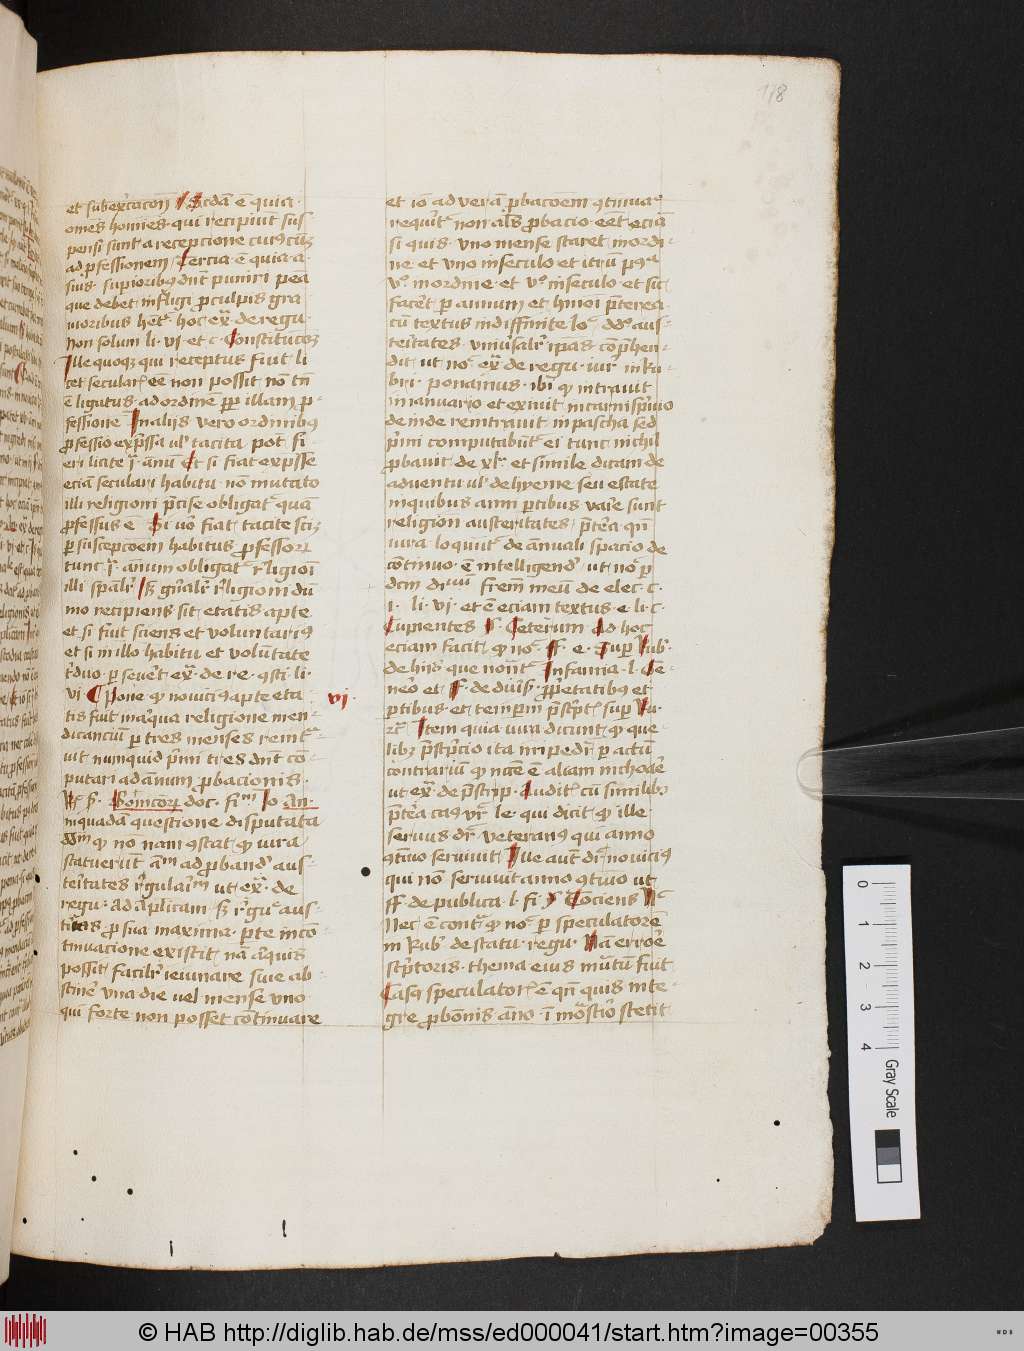 118
et subexcacoⁿᵐ Scda ē quia
om̄es hom̄ies qui recipiūt sus
pensi sunt a recepcione cuiꝰcūqꝫ
ad ꝓfessionem Tercia ē quia a
suis supioribꝰ dnt puniri pea
que debet infligi ꝓ culpis gra
uioribus hēt᷑ hoc ex᷑ de regu·
non solum li· vj· et c· Constitucōꝫ
Ille quoqꝫ qui receptus fiut li
cet secular᷑ eē non possit nō tn̄
ē ligatus ad ordinē ꝑ illam ꝓ
fessionē In alijs vero ordinibꝰ
ꝓfessio exp̄ssa ul᷑ tacita pot᷑ fi
eri licite i᷑ annū Et si fiat exp̄sse
eciā seculari habitu nō mutato
illi religioni p̄cise obligat᷑ quā
ꝓfessus ē Si uō fiat tacite scꝫ
ꝑ suscepcōem habitus ꝓfessorꝝ
tunc i᷑ annum obligat᷑ r᷑ligioni
illi sp̄al᷑r Sꝫ gn̄al᷑r r᷑ligioni dū
mo recipiens sit etatis apte
et si fuit sciens et voluntariꝰ
et si in illo habitu et volūtate
t᷑duo ꝑseuēt ex᷑ de re· ꝯsti· li·
vj· Pone ꝙ nouiciꝰ apte eta
tis fuit in aliqua religione men
dicanciū ꝑ tres menses reint᷑a
uit nunquid p̄mi tres dn̄t cō
putari ad annum ꝓbacionis·
vj·
Rꝰ s᷑· Boniconꝝ doc· fiᵐ Jo an·
in quadā questione disputata
XXᵐ ꝙ nō nam ꝯstat ꝙ iura
statuerūt aᵐ ad ꝓband᷑ aus
t᷑itates r᷑gulaiᵐ ut ex᷑· de
regu· ad aplicam Sꝫ r᷑guᵉ aus
t᷑itas ꝓ sua maxima ꝑte in cō
tinuacione existit nā aliquis
possit facilit᷑ ieiunare siue ab
stin᷑e vna die uel mense vno
qui forte non posset cōtinuare
et iō ad verā ꝓbacoēm ꝯtinuaᵒ
requir᷑t᷑ non al᷑s ꝓbacio eēt eciā
si quis vno mense staret in ordi
ne et vno in seculo et itrū pꝰᵃ
vᵒ in ordine et vᵒ in seculo et sic
facēt ꝑ annum et hmoi p̄terea
cū textus indiffinite loᵗ ddᵒ aus
teitates vniūsal᷑r ip̄as cōp̄hen
dit ut noᵗ ex᷑ de regu· iur᷑ in ru
bri· ponamus ibi ꝙ intrauit
in ianuario et exiuit in carnisp̄uio
de inde reintrauit in pascha sed
p̄mi computabūt᷑ ei tunc nichil
ꝓbauit de xlᵃ et simile dicam de
aduentu ul᷑ de hyeme seu estate
in quibus anni ꝑtibus varie sunt
religion austeritates p̄tea qn̄
iura loquūt᷑ de annuali spacio de
cōtinuo ē intelligend᷑ ut noᵗ ꝑ
dcm drᵘᵘ frem meū de elec· c·
i· li· vj· et ē eciam textus e· li· c·
Cupientes §· Ceterum Ad hoc
eciam facit ꝙ noᵗ ff· e· Suꝑ Rub᷑·
de hijs que nont᷑ Infamia l· Ge
neō et ff· de diūs· ꝓp̄etatibꝰ et
ꝑtibus et tempm̄ p̄scpt᷑· suꝑ Ru·
Item quia iura dicunt ꝙ que
libꝫ p̄scp̄cio ita impedir᷑ ꝑ actū
contrariū ꝙ nccē ē aliam inchoar᷑e
ut ex᷑ de p̄scrip· Audit᷑ cū similibꝰ
p̄tea casꝰ vr᷑ le· qui dicit ꝙ ille
seruus dr᷑ veteranꝰ qui anno
ꝯtinuo seruiuit Ille aut̄ dr᷑ nouiciꝰ
qui nō seruiuit anno ꝯtinuo ut
ff· de publica· l· fi· § Cociens
Nec ē cont᷑ ꝙ noᵗ ꝑ speculatorē
in Rub᷑ de statu regu· Nā errōe
scp̄toris thema eius mutū fiut
Casꝰ speculator᷑ ē qn̄ quis inte
gre ꝓbōnis anō ī mōstio stetit
0 1 2 3 4
Gray Scale
© HAB http://diglib.hab.de/mss/ed000041/start.htm?image=00355